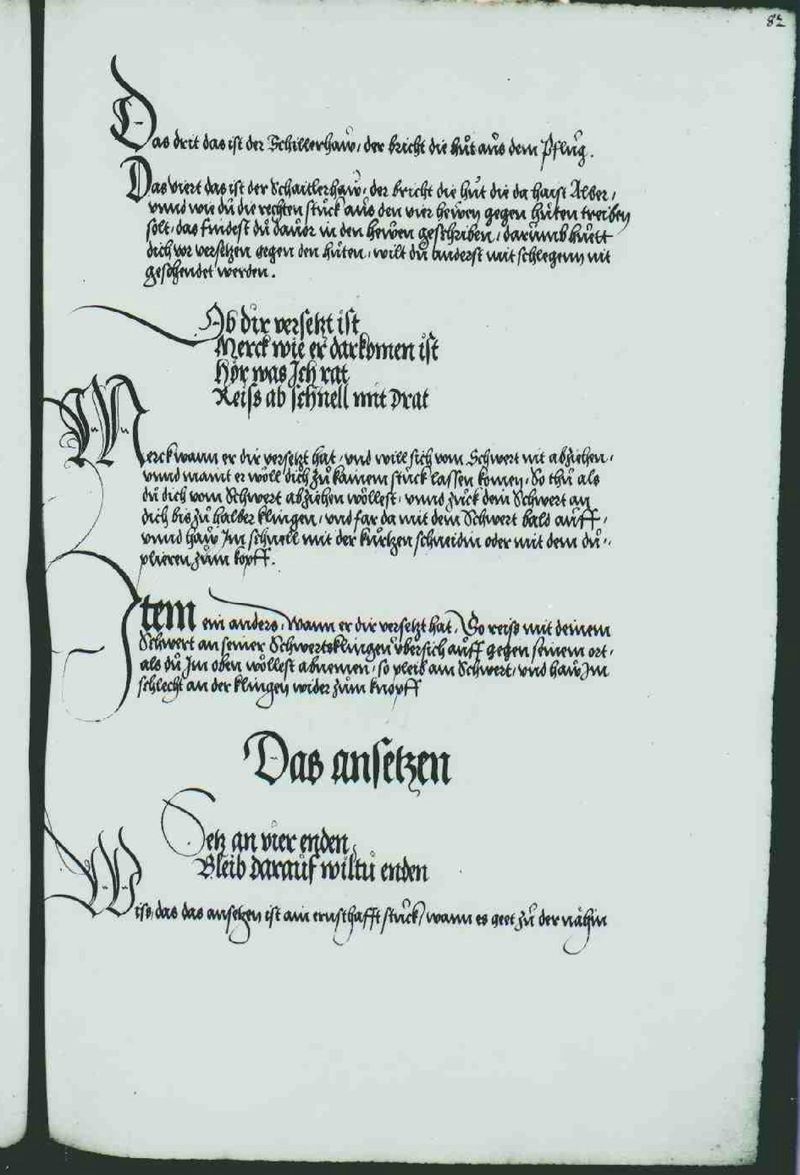 82
Das drit das ist der Schillerhaw / der bricht die hůt aůs dem Pflůg.
Das viert das ist der Schaitlerhaw / der bricht die hůt die da haist Alber /
vnnd wie dů die rechten stůck aůs den vier hewen gegen hůten treiben
solt / das findest dů dauor in den hewen geschriben / darumb hůtt
dich vor versetzen gegen den hůten / wilt dů anderst mit schlegenn nit
geschendet werden.
Ob dir versetzt ist
Merck wie er darkomen ist
Hör was Jch rat
Reiss ab schnell mit Drat
Merck wann er dir versetzt hat / vnd will sich vom Schwert nit abziehen /
vnnd maint er wöll dich zů kainem stůck lassen komen / So thů als
dů dich vom Schwert abziehen wöllest / vnnd zůck dein Schwert an
dich bis zů halber klingen / vnd far da mit dem Schwert bald aůff /
vnnd haw Jm schnell mit der kůrtzen schneidin oder mit dem dů=
plieren zům kopff.
Jtem ein anders / Wann er dir versetzt hat / So reiss mit deinem
Schwert an seiner Schwertsklingen vbersich aůff gegen seinem ort /
als dů Jm oben wöllest abnemen / so pleib am Schwert / vnd haw Jm
schlecht an der klingen wider zům knopff
Das ansetzen
Setz an vier enden
Bleib darauf wiltu enden
Wiss das das ansetzen ist ain ernsthafft stůck / wann es geet zů der nähin